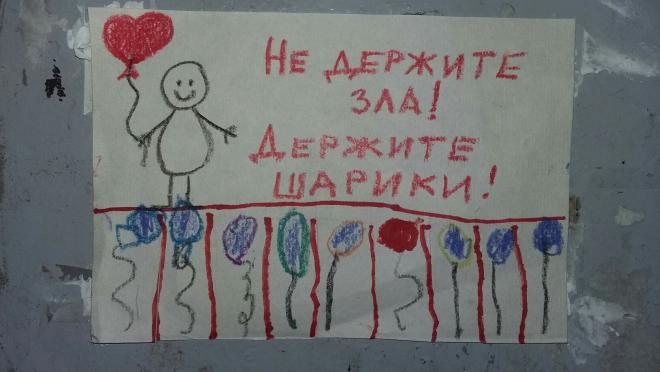 НЕ ДЕРЖИТЕ
ЗЛА!
ДЕРЖИТЕ
ШАРИКИ!